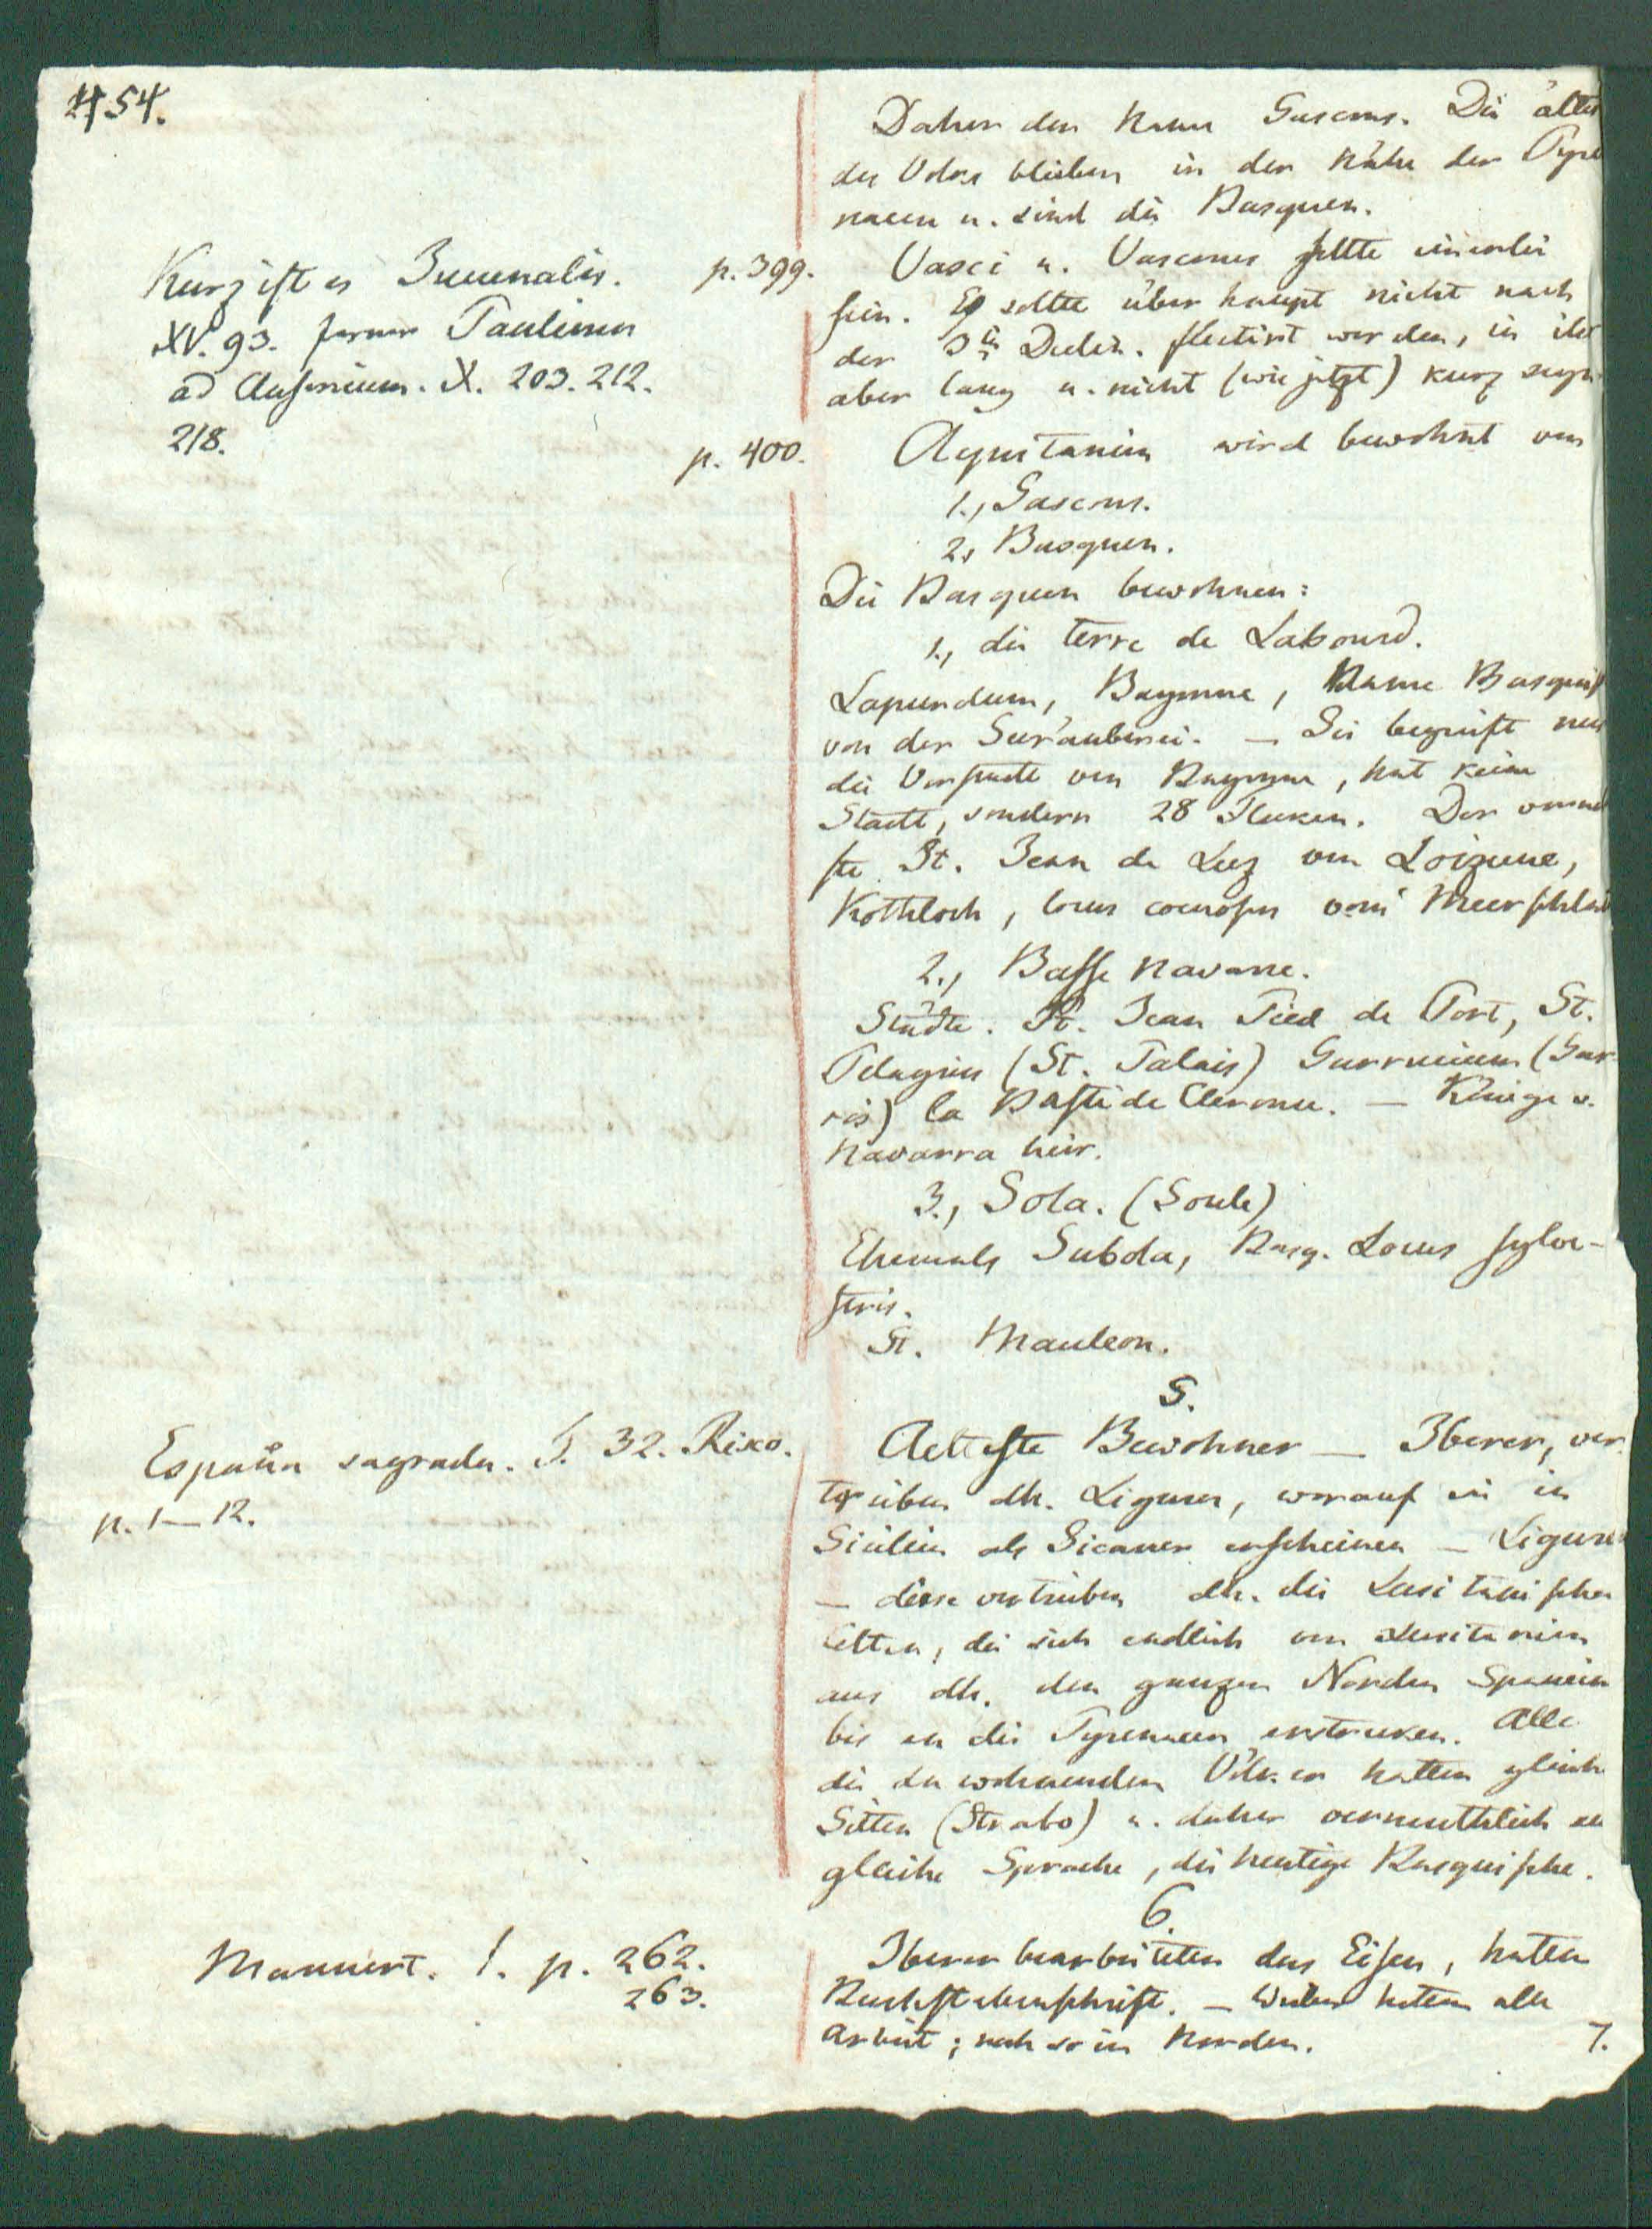 54.
Daher der Name Gascons. Die älter
des Volkes blieben in der Nähe der Pyre
naeen u. sind die Basquen.
Kurz ist es Juuenalis.
XV. 93. ferner Paulinus
ad Ausonium. X. 203. 212.
218.
p. 399.
Vasci u. Vascones sollte einerlei
sein. Es sollte überhaupt nicht nach
der 3ten Declin. flectirt werden, in ihr
aber lang u. nicht (wie jetzt) kurz seyn
p. 400.
Aquitanien wird bewohnt von
1., Gascons.
2., Basquen.
Die Basquen bewohnen:
1., die terre de Labourd.
Lapurdum, Bayonne, Name Basquisch
von der Seeräuberei. — Sie begreift nur
die Vorstadt von Bayonne, hat keine
Stadt, sondern 28 Flecken. Der
ste St. Jean de Luz von Loizune,
Kothloch, locus coenosus vom Meerschlam
2., Basse Navarre.
Städte. St. Jean Pied de Port, St.
Pelagius (St. Palais) Garrucium (Gar-
ris) la Bastide Clerence. — Könige v.
Navarra hier.
3., Sola. (Soule)
Ehemals Subola, Basq. Locus sylve-
stris.
St. Mauleon.
5.
España sagrada. T. 32. Risco.
p. 1—12.
Aelteste Bewohner — Iberer, ver
trieben dh. Ligurer, worauf sie in
Sicilien als Sicaner erscheinen — Ligurer
— diese vertrieben dh. die Lusitanischen
Celten, die sich endlich von Lusitanien
aus dh. den ganzen Norden Spanien
bis an die Pyrenaeen erstrecken. Alle
die da wohnenden Völker hatten gleiche
Sitten (Strabo) u. daher vermuthlich
gleiche Sprache, die heutige Basquische.
6.
Mannert. 1. p. 262.
263.
Iberer bearbeiteten das Eisen, hatten
Buchstabenschrift. — Weiber hatten alle
Arbeit; noch so in Norden.
7.